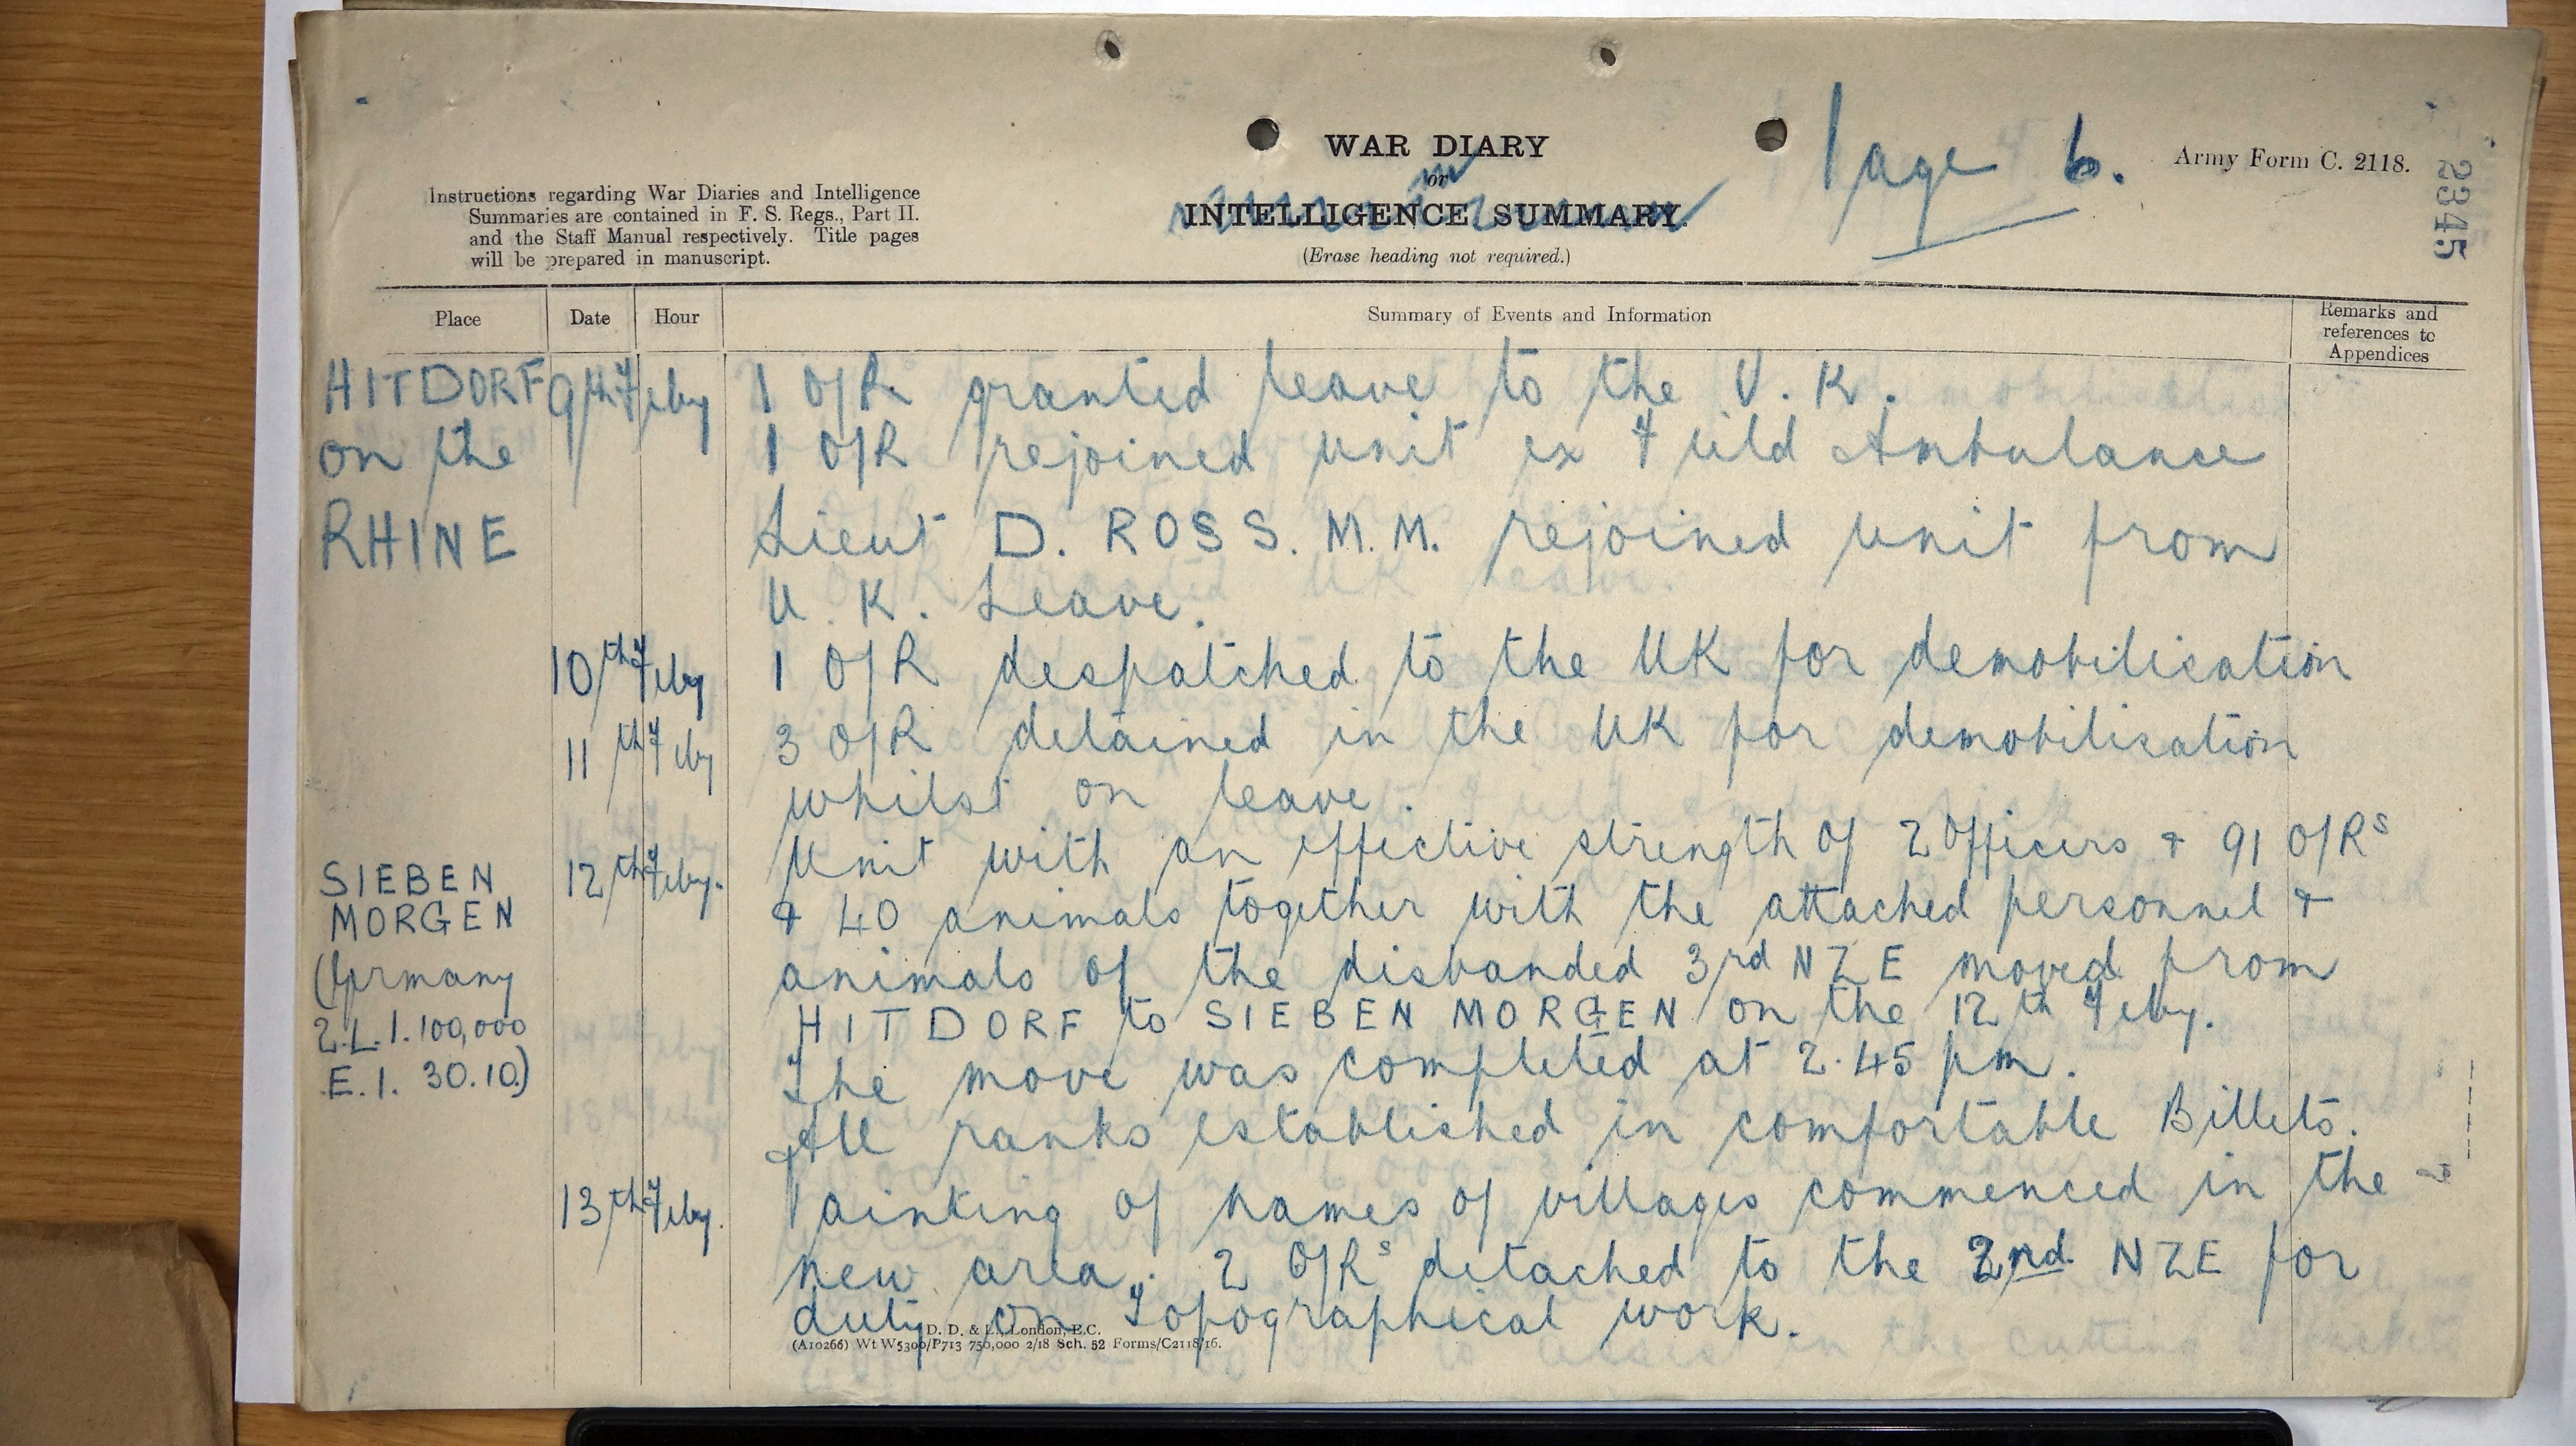 WAR DIARY
or
INTELLIGENCE SUMMARY.
(Erase heading not required.)
Page 6.
Army Form C. 2118.
2345
Instructions regarding War Diaries and Intelligence
Summaries are contained in F. S. Regs., Part II.
and the Staff Manual respectively. Title pages
will be prepared in manuscript.
Place Date Hour Summary of Events and Information Remarks and
references to
Appendices
HITDORF 9th Feby 1 O/R granted leave to the U.K.
on the 1 O/R rejoined unit ex Field Ambulance
RHINE Lieut D. ROSS. M.M. rejoined unit from
U.K. Leave.
10th Feby 1 O/R despatched to the UK for demobilisation
11th Feby 3 O/R detained in the UK for demobilisation
whilst on leave.
SIEBEN 12th Feby. Unit with an effective strength of 2 Officers & 91 O/Rs
MORGEN & 40 animals together with the attached personnel &
(Germany animals of the disbanded 3rd NZE moved from
2.L.1.100,000 HITDORF to SIEBEN MORGEN on the 12th Feby.
E.1. 30.10.) The move was completed at 2.45 pm.
All ranks established in comfortable Billets.
13th Feby. Painting of names of villages commenced in the
new area. 2 O/Rs detached to the 2nd NZE for
duty on Topographical work.
D. D. & L., London, E.C.
(A10266) Wt W5300/P713 750,000 2/18 Sch. 52 Forms/C2118/16.